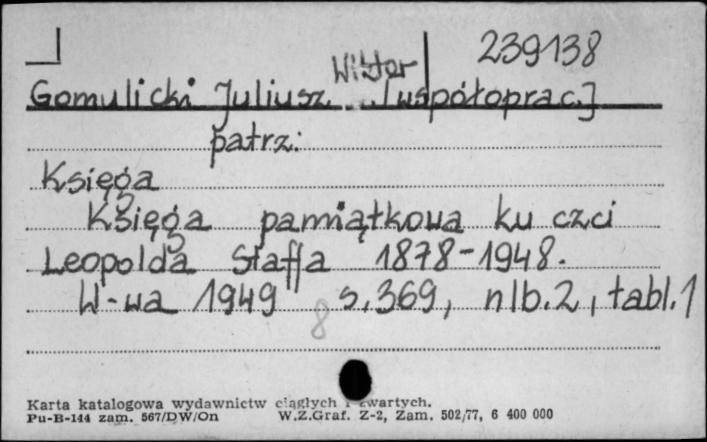 239138
Gomulicki Juliusz Wiktor [współoprac.]
patrz:
Księga
Księga pamiątkowa ku czci
Leopolda Staffa 1878-1948.
W-wa 1949 s.369, nlb.2, tabl.1
8
Karta katalogowa wydawnictw ciągłych i zwartych.
Pu-B-144 zam. 567/DW/On W.Z.Graf. Z-2, Zam. 502/77, 6 400 000